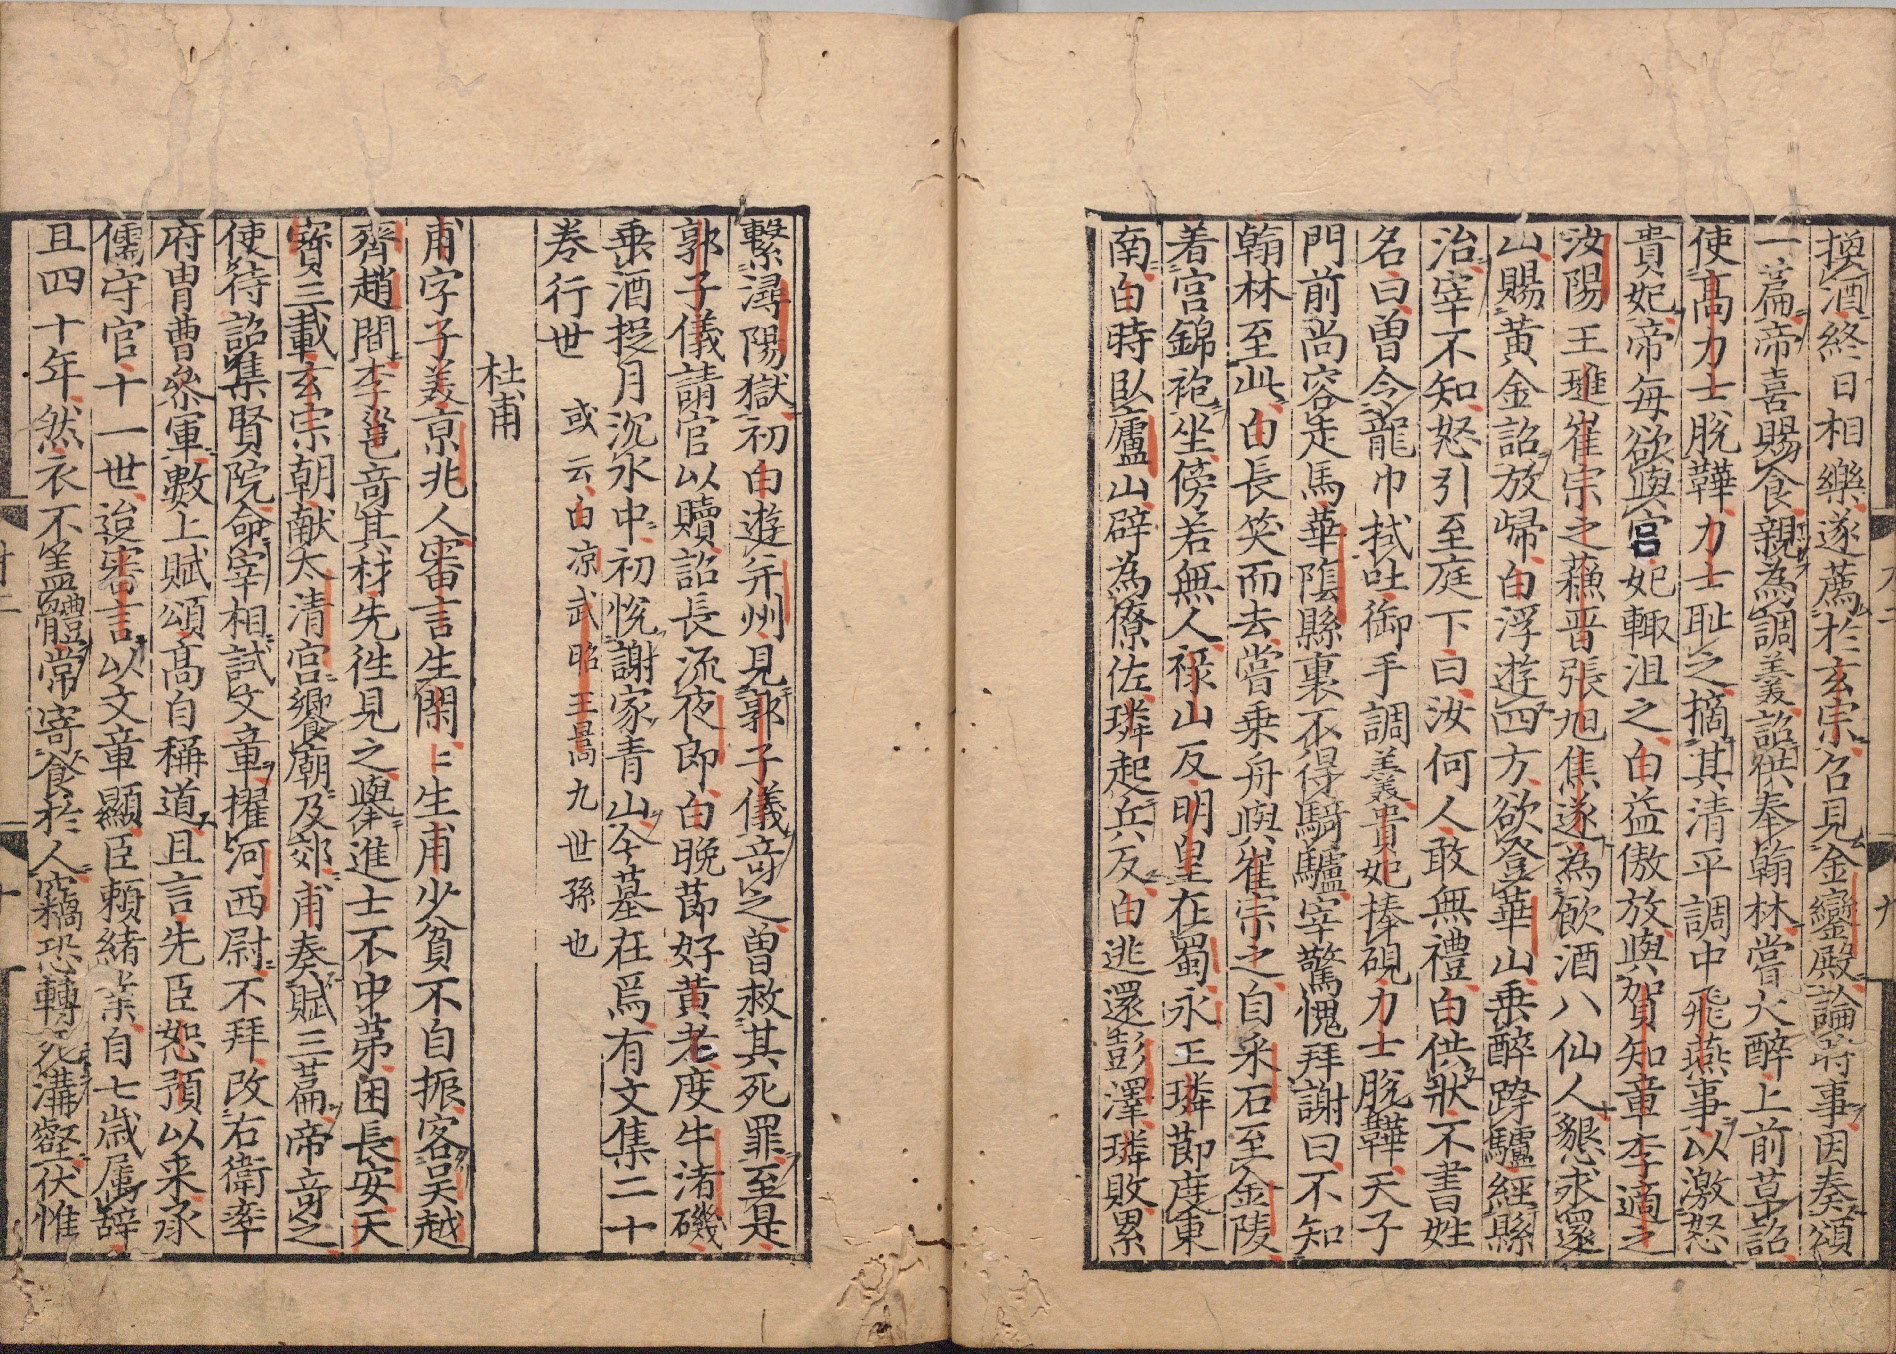 換酒終日相樂遂薦於玄宗召見金鑾殿論時事因奏頌
一篇帝喜賜食親為調羹詔供奉翰林嘗大醉上前草詔
使髙力士脫鞾力士耻之摘其清平調中飛燕事以激怒
貴妃帝每欲與官妃輙沮之白益傲放與賀知章李適之
汝陽王璡崔宗之蘓晋張旭焦遂為飲酒八仙人懇求還
山賜黄金詔放歸白浮遊四方欲登華山乗醉跨驢經縣
治宰不知怒引至庭下曰汝何人敢無禮白供狀不書姓
名曰曽令龍巾拭吐御手調羹貴妃捧硯力士脫鞾天子
門前尚容走馬華隂縣裏不得騎驢宰驚愧拜謝曰不知
翰林至此白長笑而去嘗乗舟與崔宗之自采石至金陵
着宫錦袍坐傍若無人禄山反明皇在蜀永王璘節度東
南白時臥廬山辟為僚佐璘起兵反白逃還彭澤璘敗累
繫潯陽獄初白遊并州見郭子儀竒之曽救其死罪至是
郭子儀請官以贖詔長流夜郎白晚節好黄老度牛渚磯
乗酒捉月沉水中初悅謝家青山今墓在焉有文集二十
卷行世 或云白凉武昭王暠九世孫也
杜甫
甫字子美京兆人審言生閑〻生甫少貧不自振客吴越
齊趙間李邕竒其材先徃見之舉進士不中苐困長安天
寳三載玄宗朝献太清宫饗廟及郊甫奏賦三篇帝竒之
使待詔集賢院命宰相試文章擢河西尉不拜改右衛率
府胄曹叅軍數上賦頌髙自稱道且言先臣恕預以来承
儒守官十一世迨審言以文章顯臣頼緒業自七歳属辭
且四十年然衣不盖體常寄食於人竊恐轉死溝壑伏惟